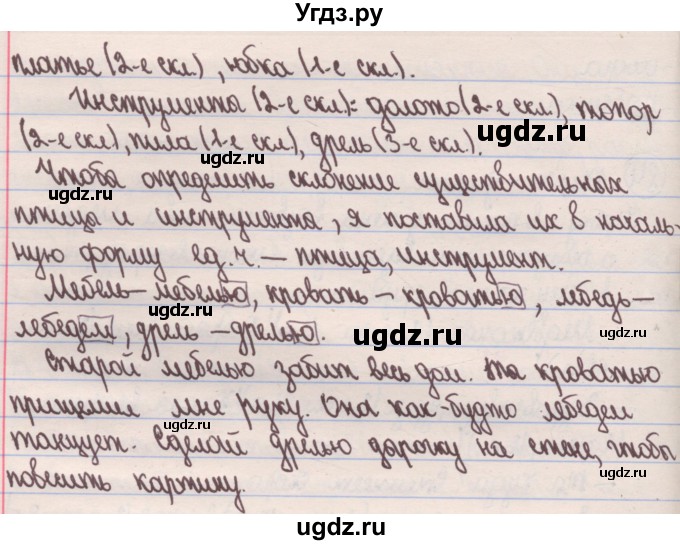 Угдз.ру
платье (2-е скл.), юбка (1-е скл.).
Инструменты (2-е скл.): долото (2-е скл), топор
(2-е скл), пила (1-е скл), дрель (3-е скл).
Чтобы определить склонение существительных
птица и инструменты, я поставила их в началь-
ную форму ед.ч. – птица, инструмент.
Мебель – мебелью, кровать – кроватью, лебедь –
лебедем, дрель – дрелью.
Старой мебелью забит весь дом. кроватью
прищемил мне руку. Она как-будто лебедем
танцует. Сделай дрелью дырочку на стене, чтобы
повесить картину.
ugdz.ru
ugdz.ru
ugdz.ru
ugdz.ru
ugdz.ru
ugdz.ru
ugdz.ru
ugdz.ru
ugdz.ru